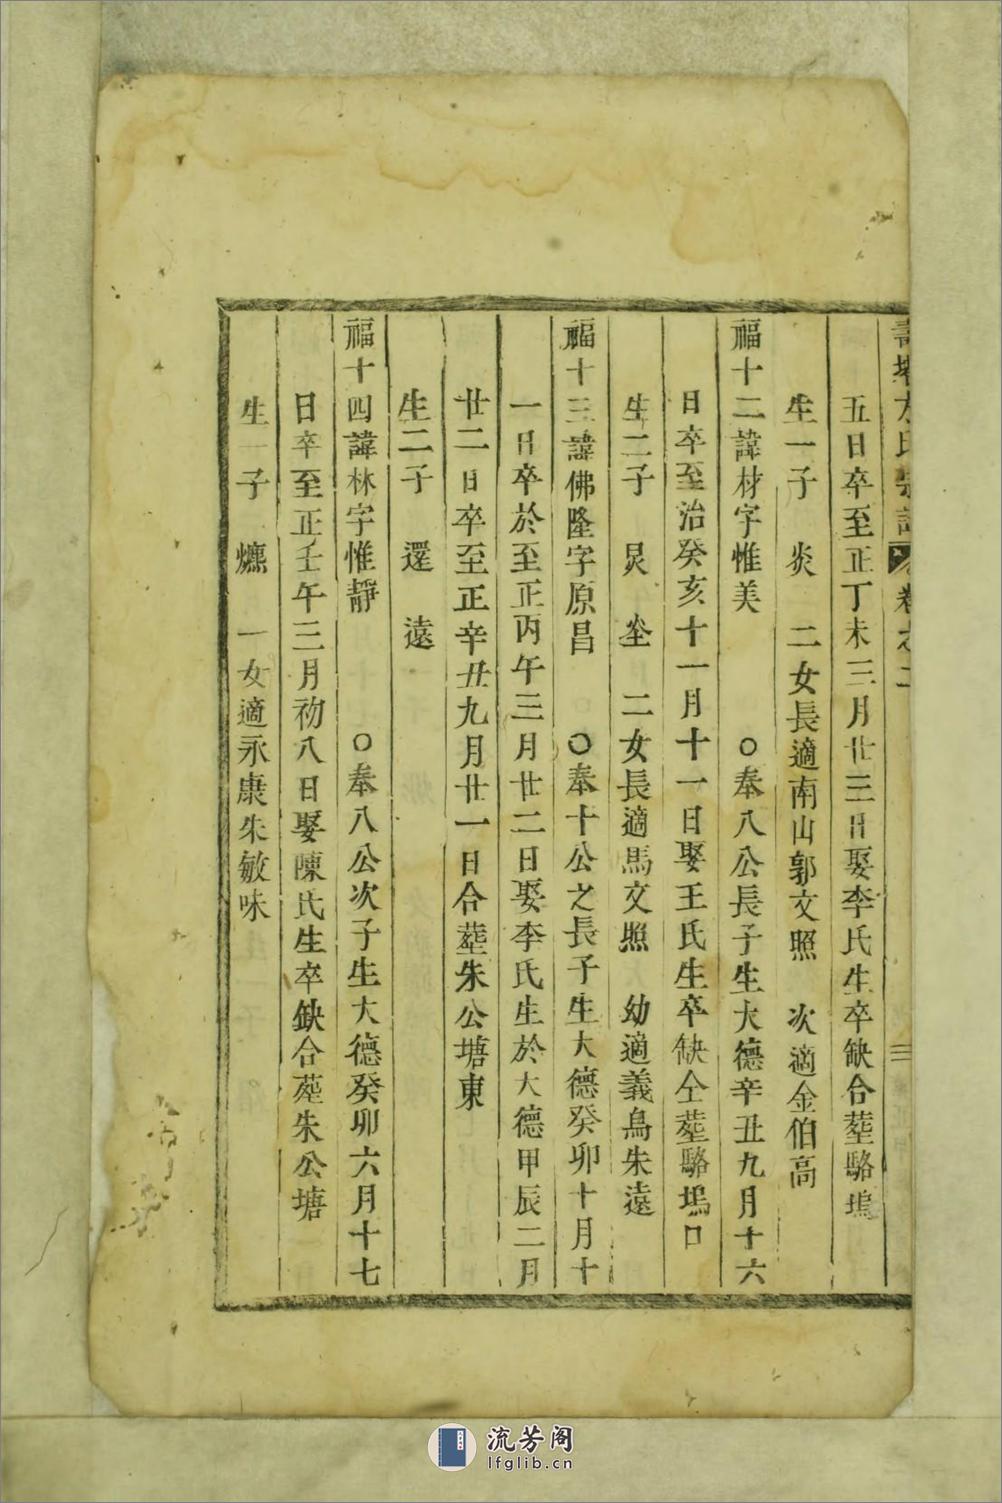 氏宗譜 卷之二 三
五日卒至正丁未三月廿三日娶李氏生卒缺合塟駱塢
生一子 炎 二女長適南山郭文照 次適金伯高
福十二諱材字惟美 ○奉八公長子生大德辛丑九月十六
日卒至治癸亥十一月十一日娶王氏生卒缺仝塟駱塢口
生二子 炅 坔 二女長適馬文照 幼適義烏朱遠
福十三諱佛隆字原昌 ○奉十公之長子生大德癸卯十月十
一日卒於至正丙午三月廿二日娶李氏生於大德甲辰二月
廿二日卒至正辛丑九月廿一日合塟朱公塘東
生二子 還 遠
福十四諱林字惟靜 ○奉八公次子生大德癸卯六月十七
日卒至正壬午三月初八日娶陳氏生卒缺合塟朱公塘
生一子 爊 一女適永康朱敏味
流芳阁
lfglib.cn